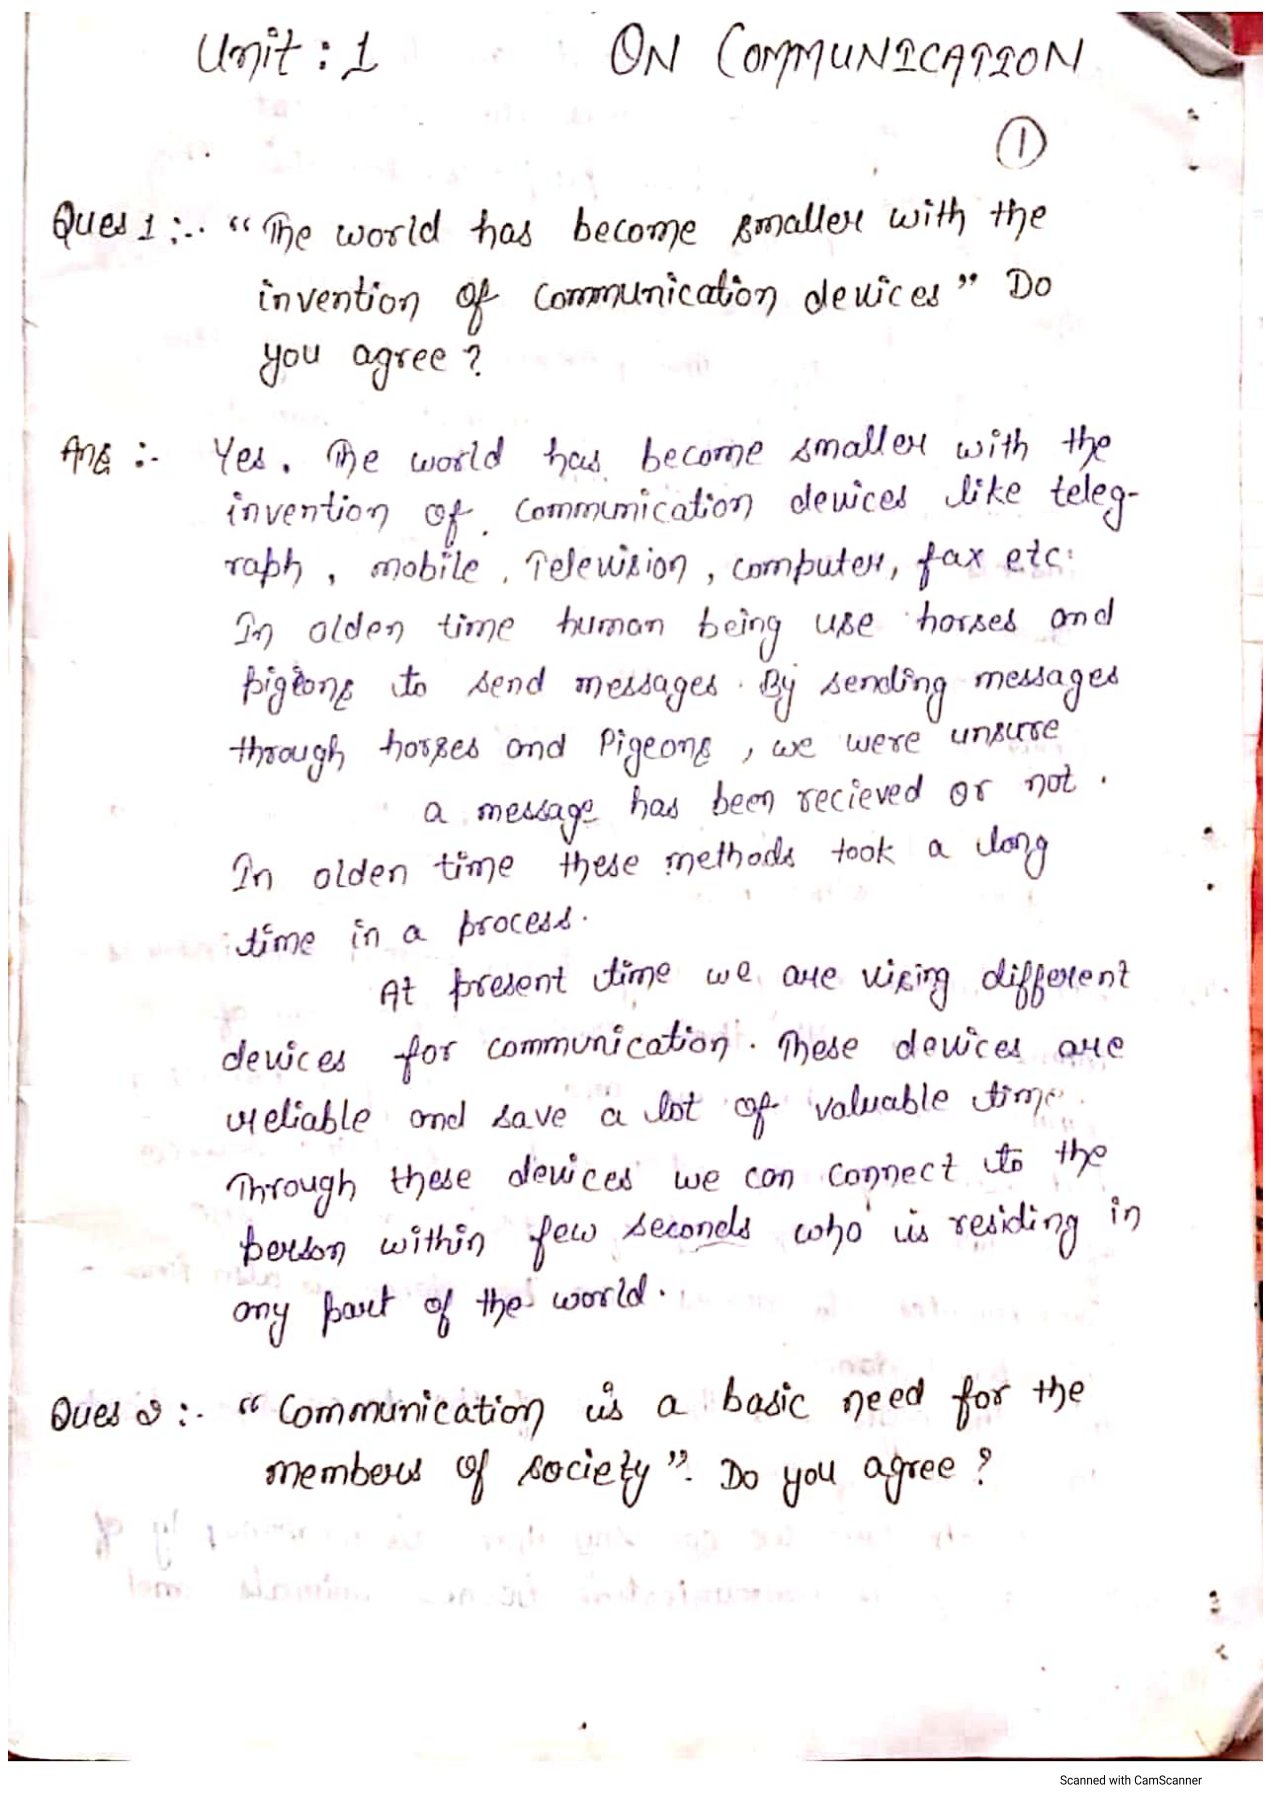 Unit : 1 ON COMMUNICATION
1
Ques 1 :- "The world has become smaller with the
invention of communication devices" Do
you agree ?
Ans :- Yes. The world has become smaller with the
invention of communication devices like teleg-
raph, mobile, Television, computer, fax etc.
In olden time human being use horses and
pigeons to send messages. By sending messages
through horses and Pigeons, we were unsure
a message has been recieved or not.
In olden time these methods took a long
time in a process.
At present time we are using different
devices for communication. These devices are
reliable and save a lot of valuable time.
Through these devices we can connect to the
person within few seconds who is residing in
any part of the world.
Ques 2 :- "Communication is a basic need for the
members of society". Do you agree ?
Scanned with CamScanner